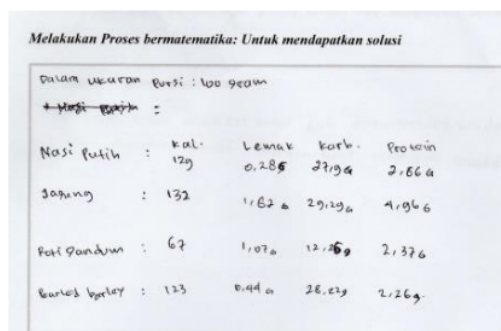 Melakukan Proses bermatematika: Untuk mendapatkan solusi
Dalam ukuran Porsi : 100 gram
Kal. Lemak Karb. Protein
Nasi Putih : 129 0,28g 27,9g 2,66g
Jagung : 132 1,82g 29,29g 4,96g
Roti gandum : 67 1,07g 12,26g 2,37g
barley : 123 0.44g 28,22g 2,26g.